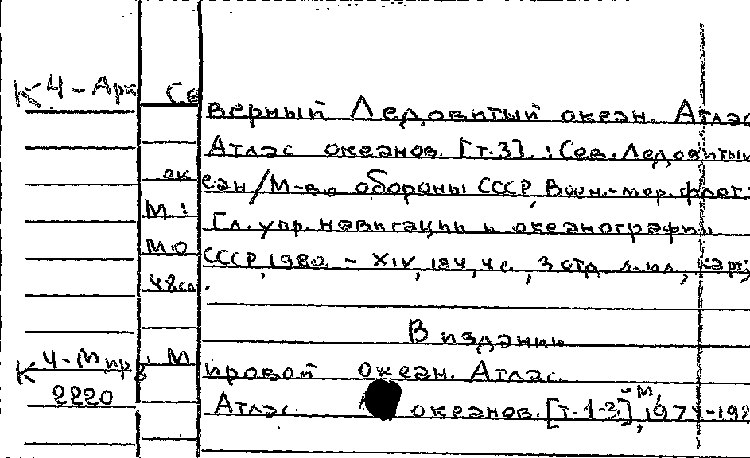 К4-Арк Северный Ледовитый океан. Атлас
Атлас океанов. [т.3]. : Сев. Ледовитый
океан/М-во обороны СССР, Воен.-мор. флот.
М: Гл. упр. навигации и океанографии
МО СССР, 1980. - XIV, 184, 4 с., 3 отд. л. ил., карт;
48см.
В издании
К4-Мир Мировой океан. Атлас.
2220 Атлас океанов. [т. 1-2], - М, 1974-